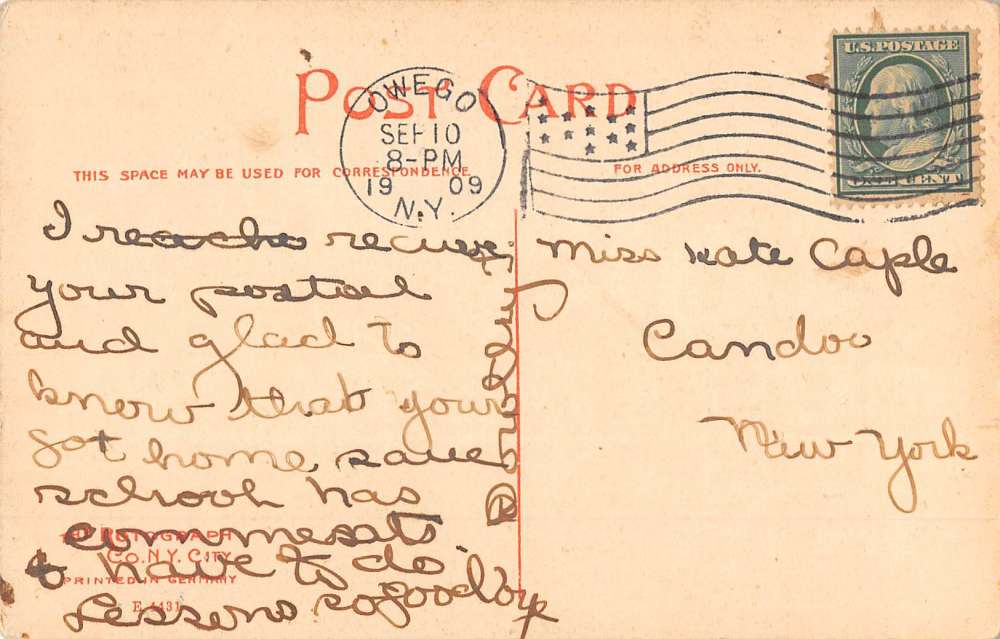 POST CARD
OWEGO
SEP 10
8-PM
1909
N.Y.
U.S.POSTAGE
ONE CENT
THIS SPACE MAY BE USED FOR CORRESPONDENCE
FOR ADDRESS ONLY.
I recive
your postal
and glad to
know that your
got home save
school has
commesats
& have to do
Lessons so good bye
Miss Kate Caple
Candoo
New York
THE ROTOGRAPH
CO. N.Y. CITY
PRINTED IN GERMANY
E 4431